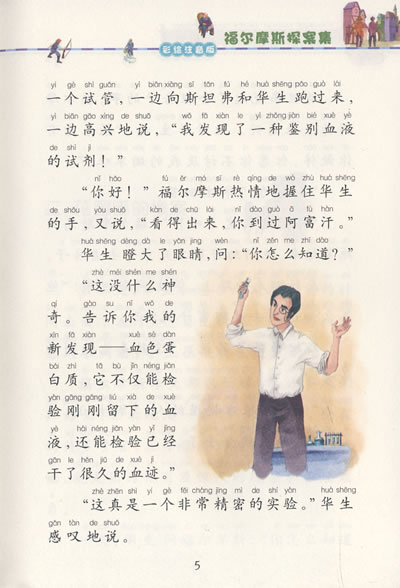 彩绘注音版 福尔摩斯探案集
yí gè shì guǎn yì biān xiàng sī tǎn fú hé huá shēng pǎo guò lái
一个试管，一边向斯坦弗和华生跑过来，
yì biān gāo xìng de shuō wǒ fā xiàn le yì zhǒng jiàn bié xuè yè
一边高兴地说，“我发现了一种鉴别血液
de shì jì
的试剂！”
nǐ hǎo fú ěr mó sī rè qíng de wò zhù huá shēng
“你好！”福尔摩斯热情地握住华生
de shǒu yòu shuō kàn de chū lái nǐ dào guò ā fù hàn
的手，又说，“看得出来，你到过阿富汗。”
huá shēng dèng dà le yǎn jing wèn nǐ zěn me zhī dào
华生瞪大了眼睛，问：“你怎么知道？”
zhè méi shén me shén
“这没什么神
qí gào su nǐ wǒ de
奇。告诉你我的
xīn fā xiàn xuè sè dàn
新发现——血色蛋
bái zhì tā bù jǐn néng jiǎn
白质，它不仅能检
yàn gāng gāng liú xià de xuè
验刚刚留下的血
yè hái néng jiǎn yàn yǐ jīng
液，还能检验已经
gān le hěn jiǔ de xuè jì
干了很久的血迹。”
zhè zhēn shì yí gè fēi cháng jīng mì de shí yàn huá shēng
“这真是一个非常精密的实验。”华生
gǎn tàn de shuō
感叹地说。
5